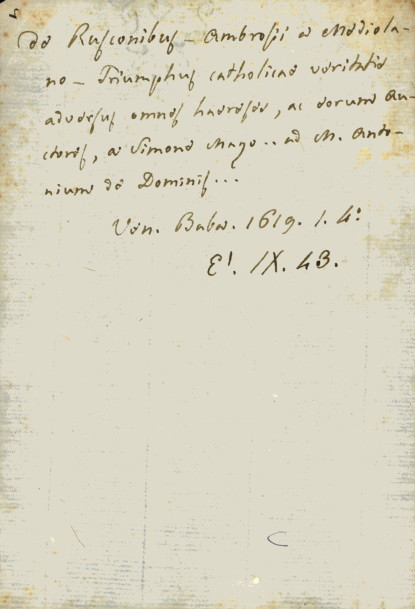 de Rusconibus - Ambrosii a Mediola-
no - Triumphus catholicae veritatis
adversus omnes haereses, ac eorum Au-
ctores, a Simone Mago .. ad M. Anto-
nium de Dominis...
Ven. Baba. 1619. 1. 4º
E'. IX. 43.